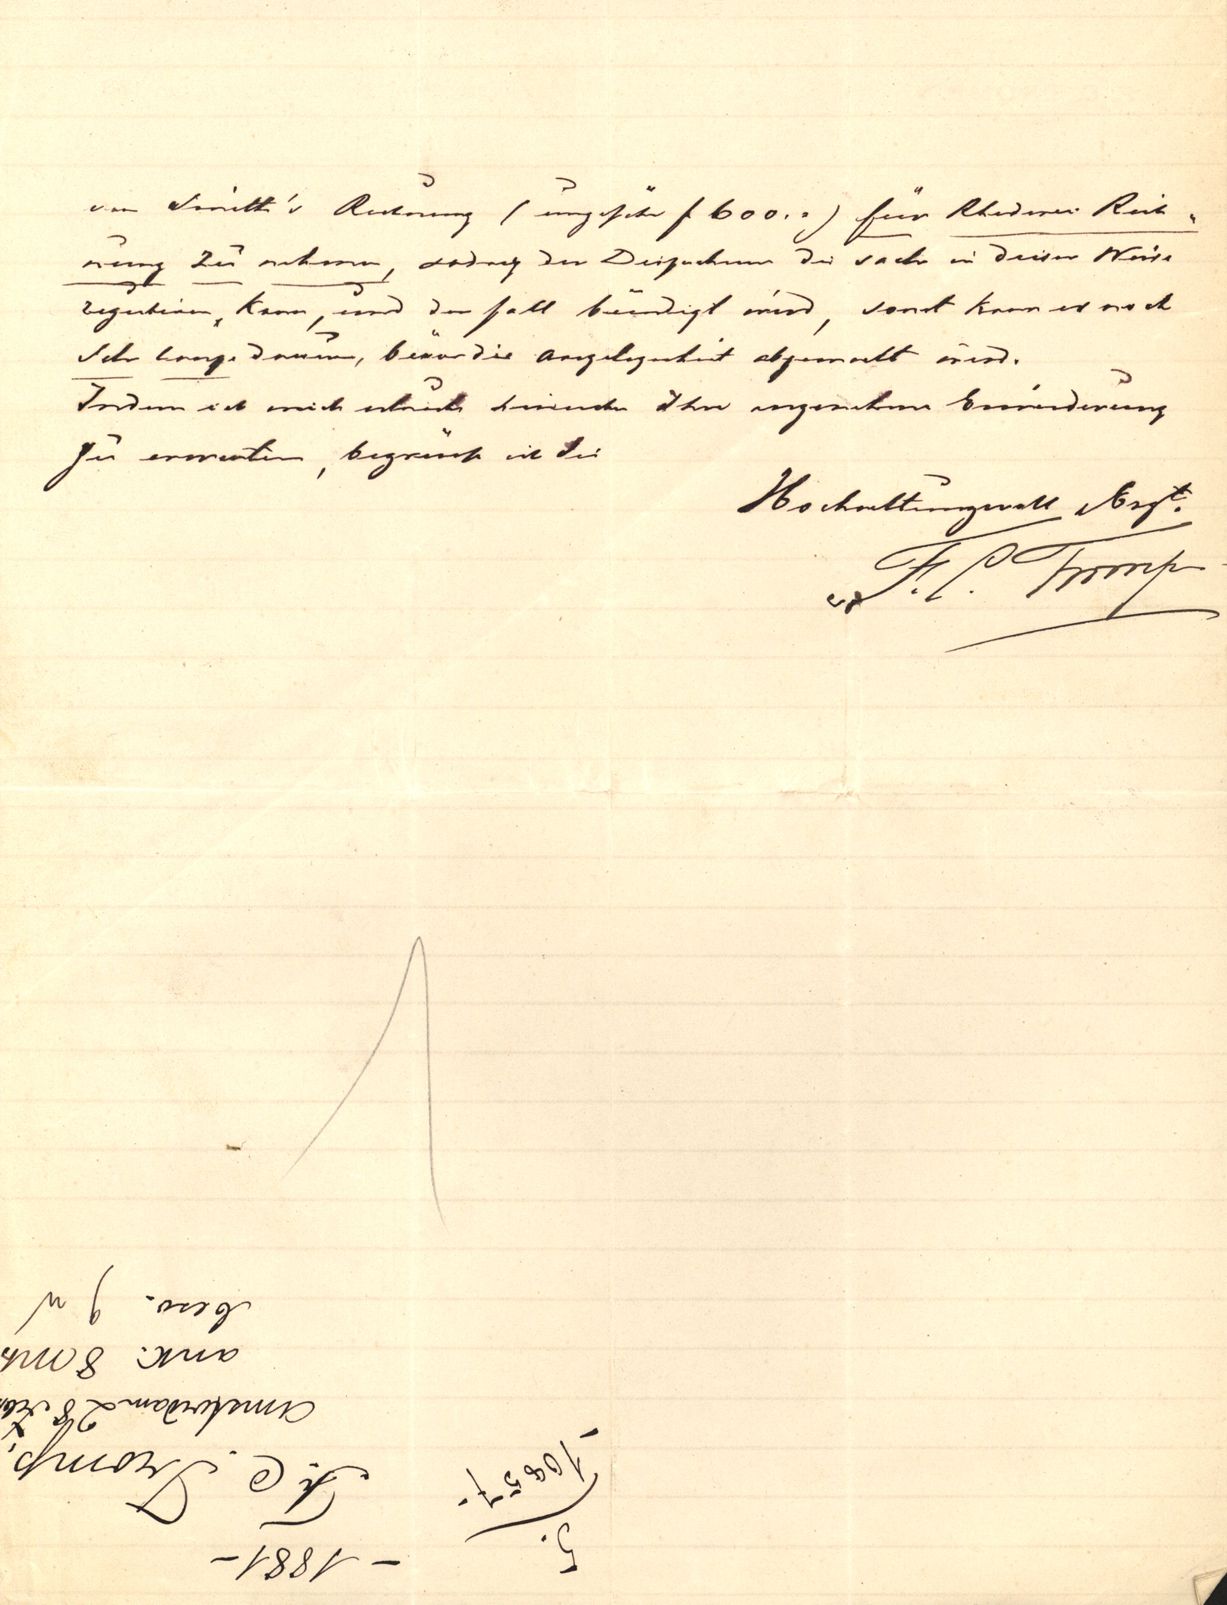 von Smith's Rechnung (ungefähr f 600..) für Rhederei Rech-
nung zu nehmen, sodass der Dispacheur die sache in dieser Weise
reguliren kann, und der fall beendigt wird, sonst kann es noch
sehr lange dauern, bevor die angelegenheit abgemacht wird.
Indem ich mich erlaube hierueber Ihre angenehme Erwiederung
zu erwarten, begrüsse ich Sie
Hochachtungsvoll Ergt.
F. C. Tromp
- 1881 -
F. C. Tromp,
Amsterdam 28 Febr
ank. 8 Mts
beso. 9 "
5.
10957-